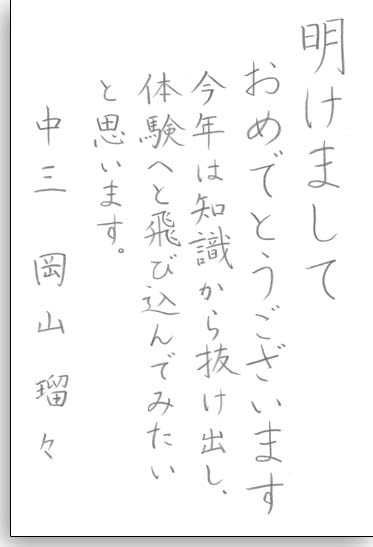 明けまして
おめでとうございます
今年は知識から抜け出し、
体験へと飛び込んでみたい
と思います。
中三 岡山瑠々